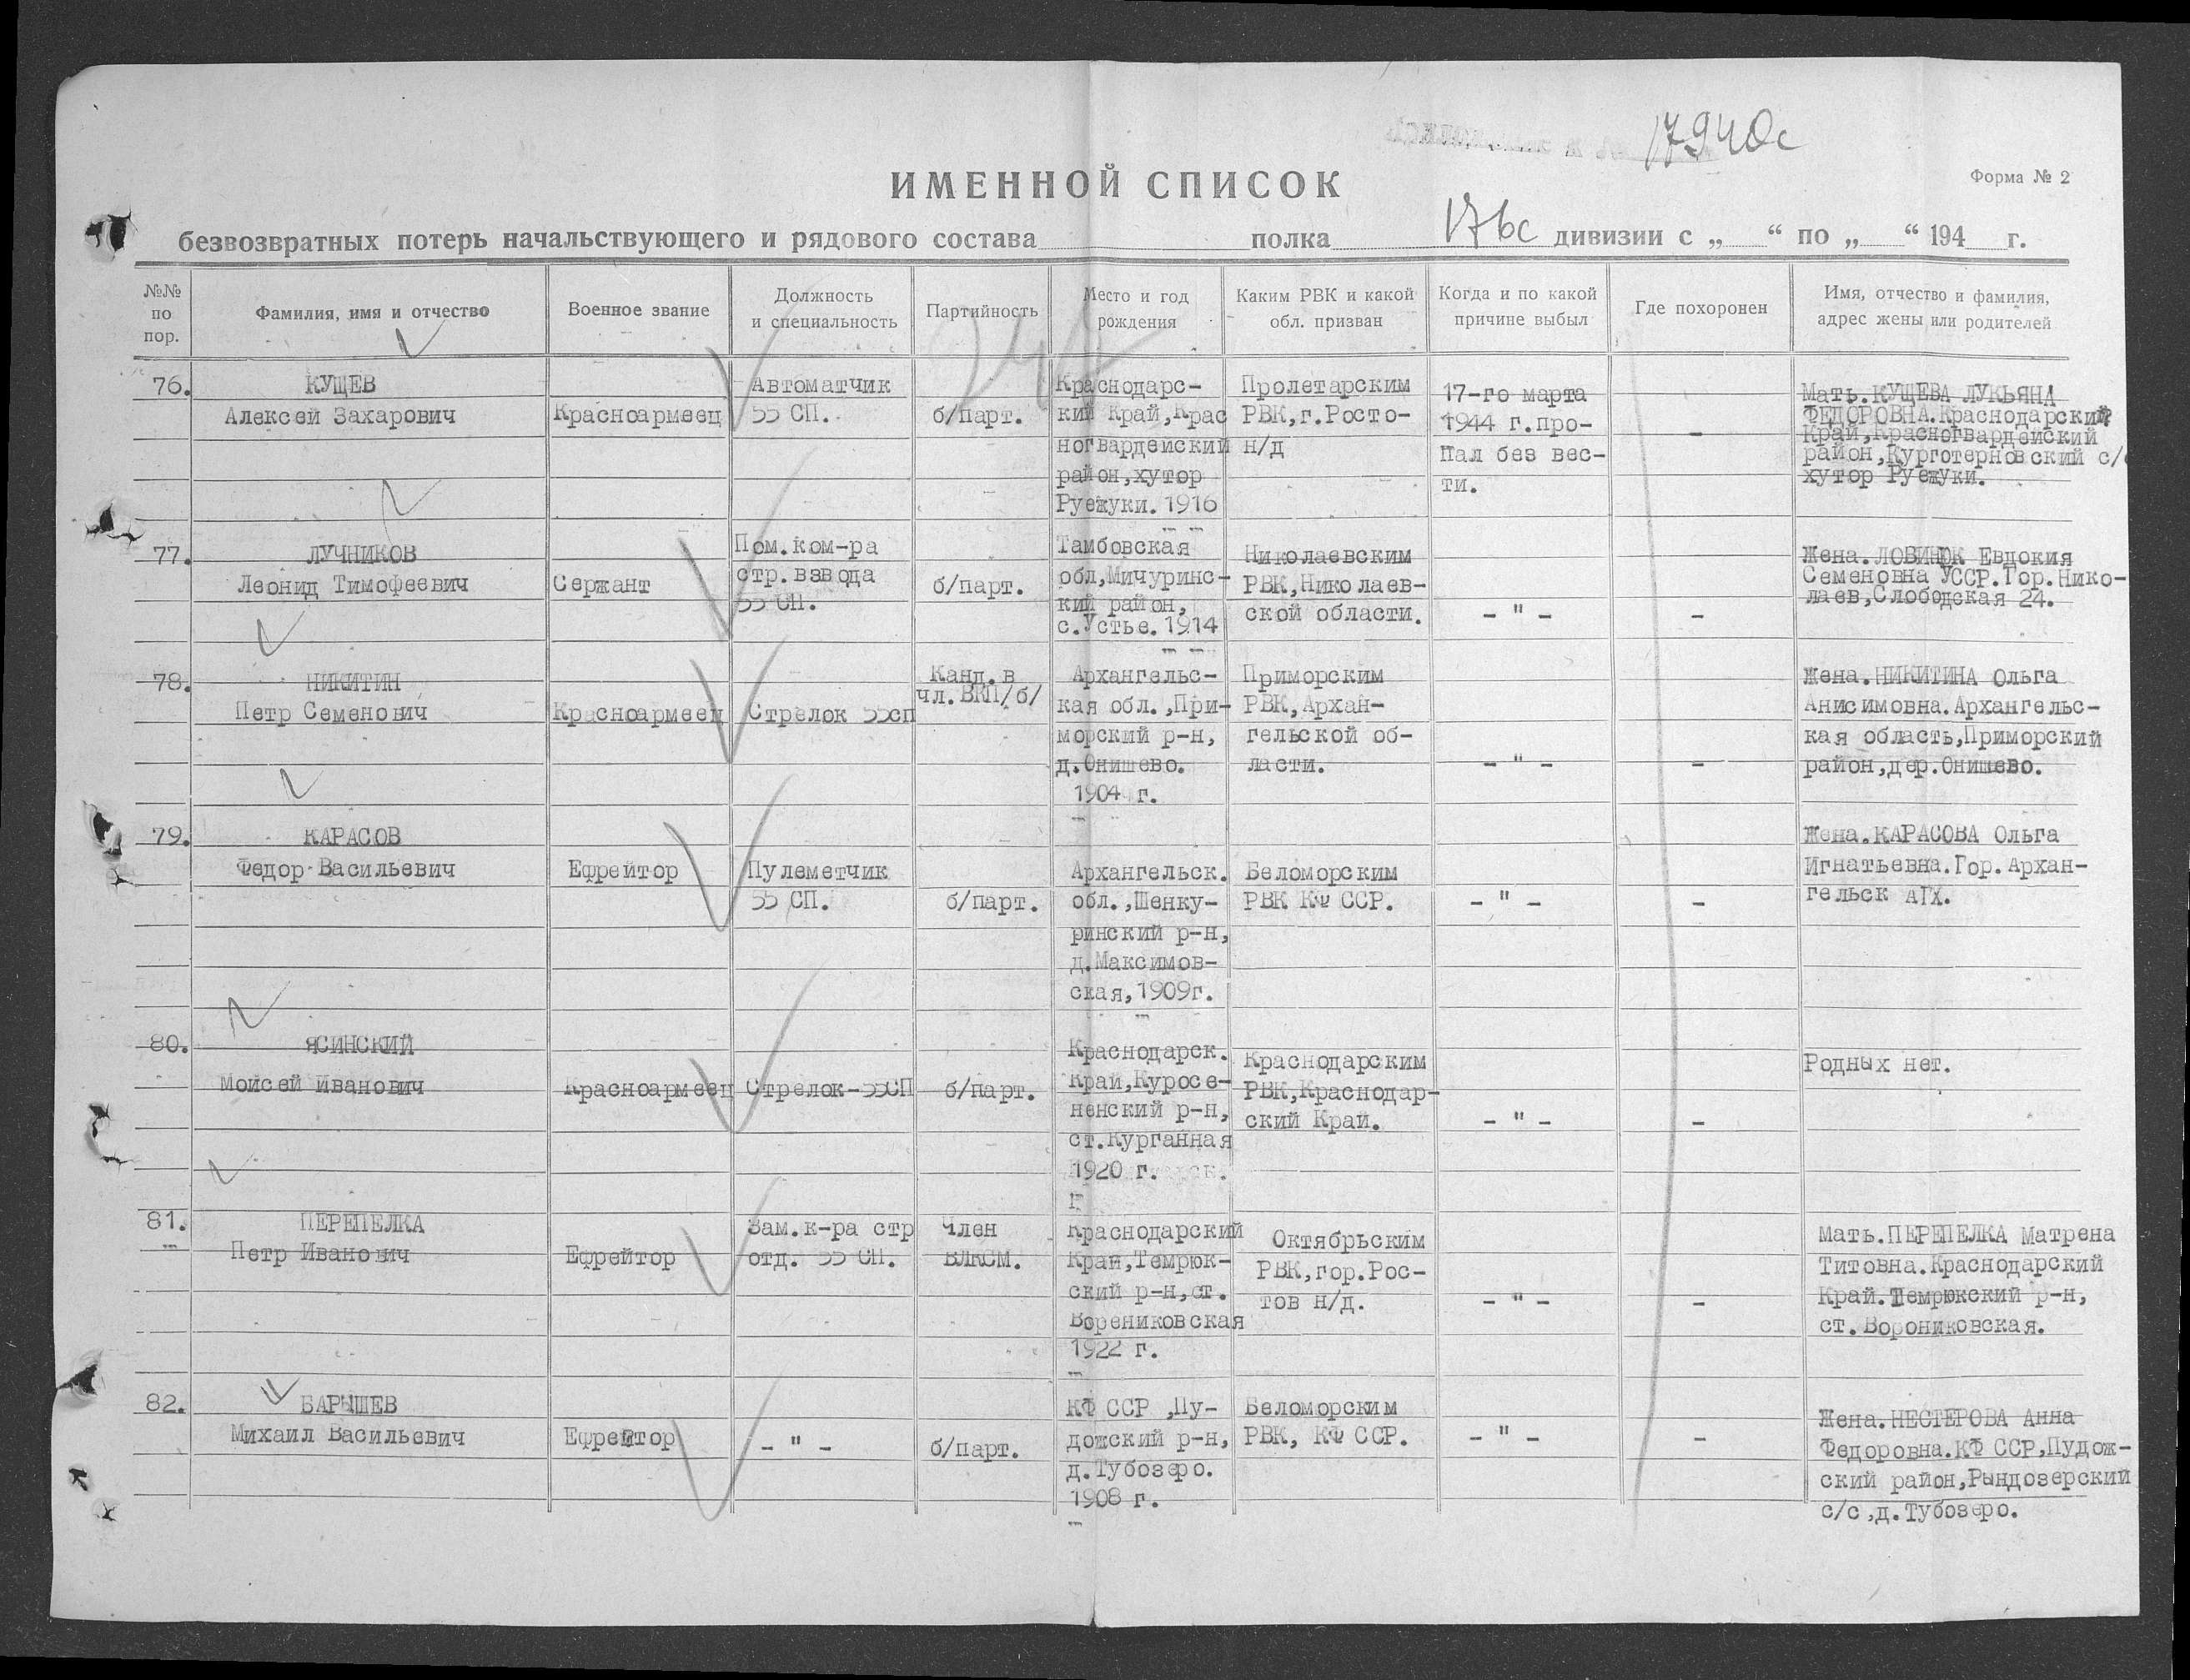 17940с
ИМЕННОЙ СПИСОК
Форма № 2
безвозвратных потерь начальствующего и рядового состава полка 176с дивизии с „ “ по „ “ 194 г.
№№ по пор.
Фамилия, имя и отчество
Военное звание
Должность и специальность
Партийность
Место и год рождения
Каким РВК и какой обл. призван
Когда и по какой причине выбыл
Где похоронен
Имя, отчество и фамилия, адрес жены или родителей
76.
КУЩЕВ
Алексей Захарович
Красноармеец
Автоматчик
55 СП.
б/парт.
Краснодарс-
кий Край,Крас
ногвардейский
район,хутор
Руежуки.1916
Пролетарским
РВК,г.Росто-
н/д
17-го марта
1944 г.про-
пал без вес-
ти.
-
Мать.КУЩЕВА ЛУКЬЯНА
ФЕДОРОВНА.Краснодарский
Край,Красногвардейский
район,Курготерновский с/с
хутор Руежуки.
77.
ЛУЧНИКОВ
Леонид Тимофеевич
Сержант
Пом.ком-ра
стр.взвода
55 СП.
б/парт.
Тамбовская
обл,Мичуринс-
кий район,
с.Устье.1914
Николаевским
РВК,Николаев-
ской области.
- " -
-
Жена.ЛОВИНЮК Евдокия
Семеновна УССР.Гор.Нико-
лаев,Слободская 24.
78.
НИКИТИН
Петр Семенович
Красноармеец
Стрелок 55сп
Канд.в
чл.ВКП/б/
Архангельс-
кая обл.,При-
морский р-н,
д.Онишево.
1904 г.
Приморским
РВК,Архан-
гельской об-
ласти.
- " -
-
Жена.НИКИТИНА Ольга
Анисимовна.Архангельс-
кая область,Приморский
район,дер.Онишево.
79.
КАРАСОВ
Федор Васильевич
Ефрейтор
Пулеметчик
55 СП.
б/парт.
Архангельск.
обл.,Шенку-
ринский р-н,
д.Максимов-
ская,1909г.
Беломорским
РВК КФ ССР.
- " -
-
Жена.КАРАСОВА Ольга
Игнатьевна.Гор.Архан-
гельск АГХ.
80.
ЯСИНСКИЙ
Моисей Иванович
Красноармеец
Стрелок-55СП
б/парт.
Краснодарск.
Край,Куросе-
ненский р-н,
ст.Курганная
1920 г.
Краснодарским
РВК,Краснодар-
ский Край.
- " -
-
Родных нет.
81.
ПЕРЕПЕЛКА
Петр Иванович
Ефрейтор
Зам.к-ра стр
отд. 55 СП.
Член
ВЛКСМ.
Краснодарский
Край,Темрюк-
ский р-н,ст.
Ворениковская
1922 г.
Октябрьским
РВК,гор.Рос-
тов н/д.
- " -
-
Мать.ПЕРЕПЕЛКА Матрена
Титовна.Краснодарский
Край.Темрюкский р-н,
ст.Ворониковская.
82.
БАРЫШЕВ
Михаил Васильевич
Ефрейтор
- " -
б/парт.
КФ ССР ,Пу-
дожский р-н,
д.Тубозеро.
1908 г.
Беломорским
РВК, КФ ССР.
- " -
-
Жена.НЕСТЕРОВА Анна
Федоровна.КФ ССР,Пудож-
ский район,Рындозерский
с/с,д.Тубозеро.